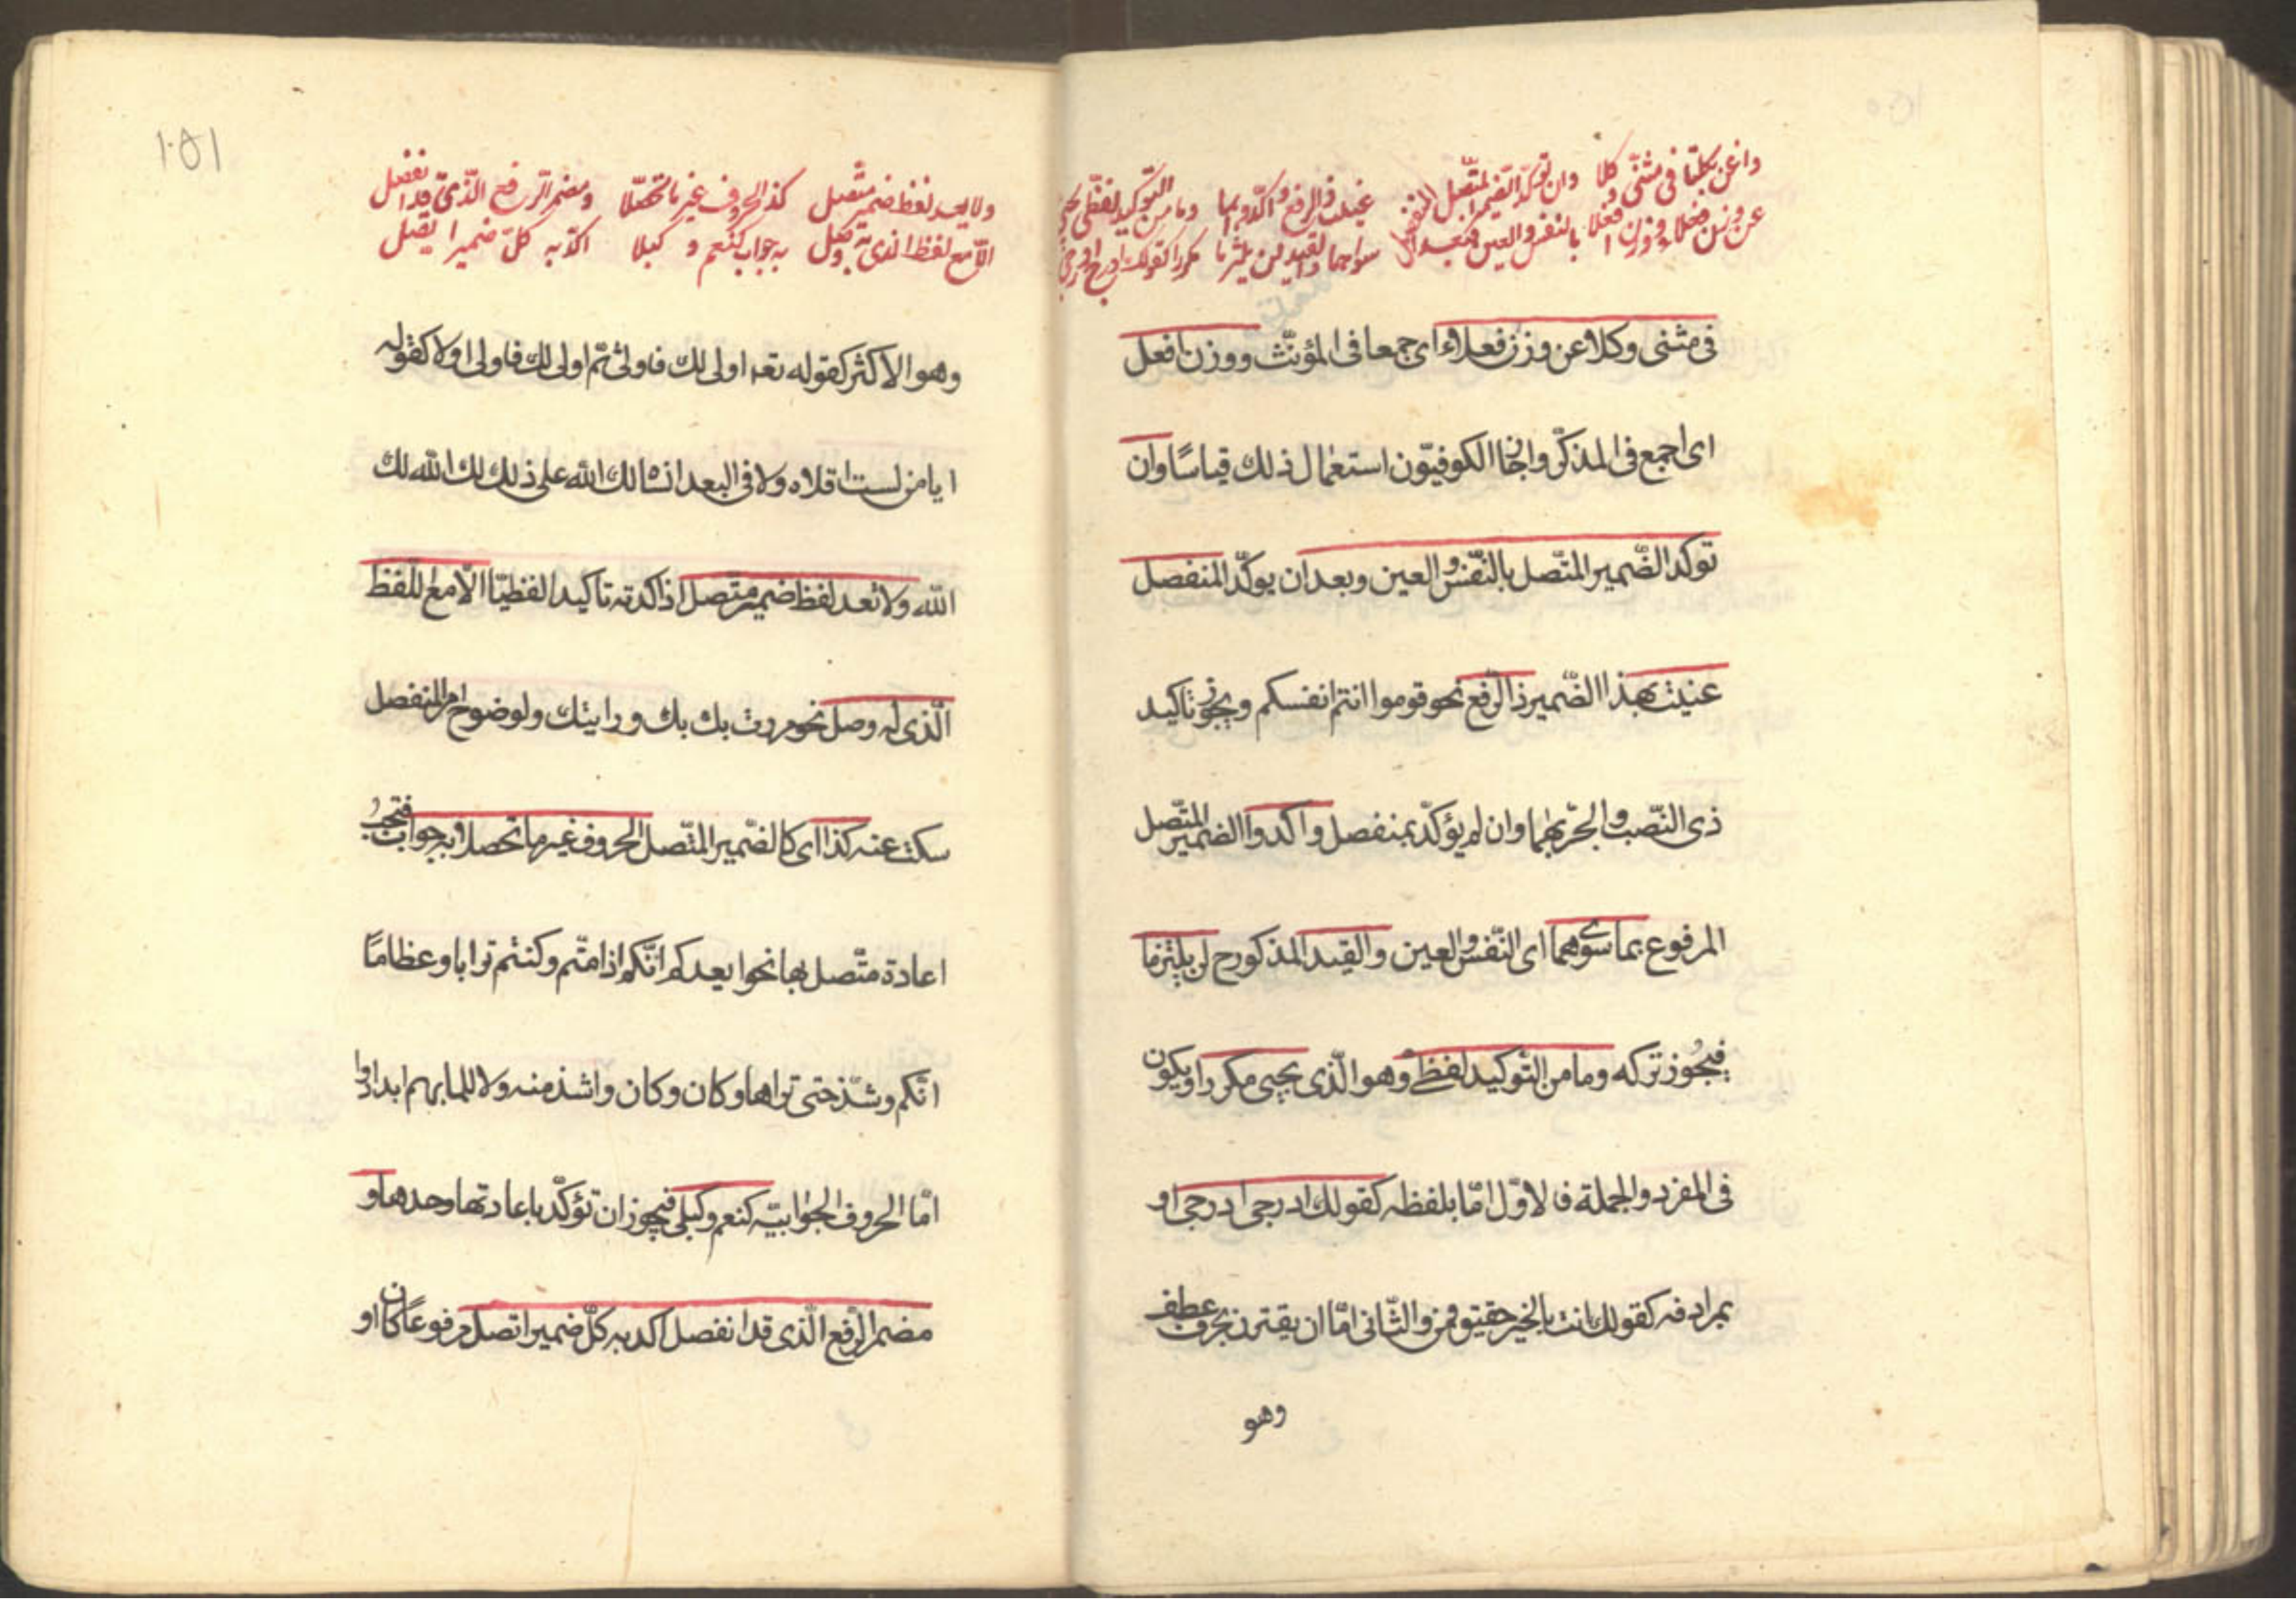 واغن بكلتا فى مثنّى وكلا وان توكّد الضّمير المتّصل عنيت ذا الرفع واكّدوا بما وما من التّوكيد لفظّى يجى
عن وزن فعلاء ووزن افعلا بالنفس والعين فبعد المنفصل سواهما والقيد لن يلتزما مكررا كقولك ادرجى ادرجى
فى مثنى وكلا عن وزن فعلاء اى جمعا فى المؤنّث ووزن افعل
اى اجمع فى المذكّر واجاز الكوفيّون استعمال ذلك قياسًا وان
توكد الضّمير المتّصل بالنّفس والعين وبعد ان يوكّد المنفصل
عنيت بهذا الضّمير ذا الرّفع نحو قوموا انتم انفسكم ويجوز تاكيد
ذى النّصب والجرّ بهما وان لم يؤكّد بمنفصل واكدوا الضمير المتّصل
المرفوع بما سوىهما اى النّفس والعين والقيد المذكور ح لن يلتزما
فيجُوز تركه وما من التّوكيد لفظىّ وهو الّذى يجيى مكررا ويكون
فى المفرد والجملة فالاوّل امّا بلفظه كقولك ادرجى ادرجى او
بمرادفه كقولك انت بالخير حقيق قمن والثّانى امّا ان يقترن بحرف عطف
وهو
١٥١
ولا يعد لفظ ضمير متّصل كذا الحروف غير ما تحصّلا ومضمر الرّفع الّذى قد انفصل
الّا مع لفظ الذى به وصل به جواب كنعم و كبلا اكّد به كلّ ضمير اتّصل
وهو الاكثر كقوله تعه اولى لك فاولى ثمّ اولى لك فاولى او لا كقوله
ايا من لست اقلاه ولا فى البعد انساه لك الله على ذلك لك الله لك
الله ولا تعد لفظ ضمير متّصل اذا كدته تاكيدا لفظيّا الّا مع اللّفظ
الّذى به وصل نحو مررت بك بك ورايتك ولوضوح امر المنفصل
سكت عنه كذا اى كالضّمير المتّصل الحروف غير ما تحصلا به جواب فتجبُ
اعادة متّصل بها نحو ايعدكم انّكم اذا متّم وكنتم ترابا وعظامًا
انّكم وشذّ حتى تراها وكان وكان واشذ منه ولا للما بهم ابدا دوا
امّا الحروف الجوابيّه كنعم وكبلى فيجوز ان تؤكّد باعادتها وحدها و
مضمر الرّفع الّذى قد انفصل اكد به كلّ ضمير اتصل مرفوعًا كان او